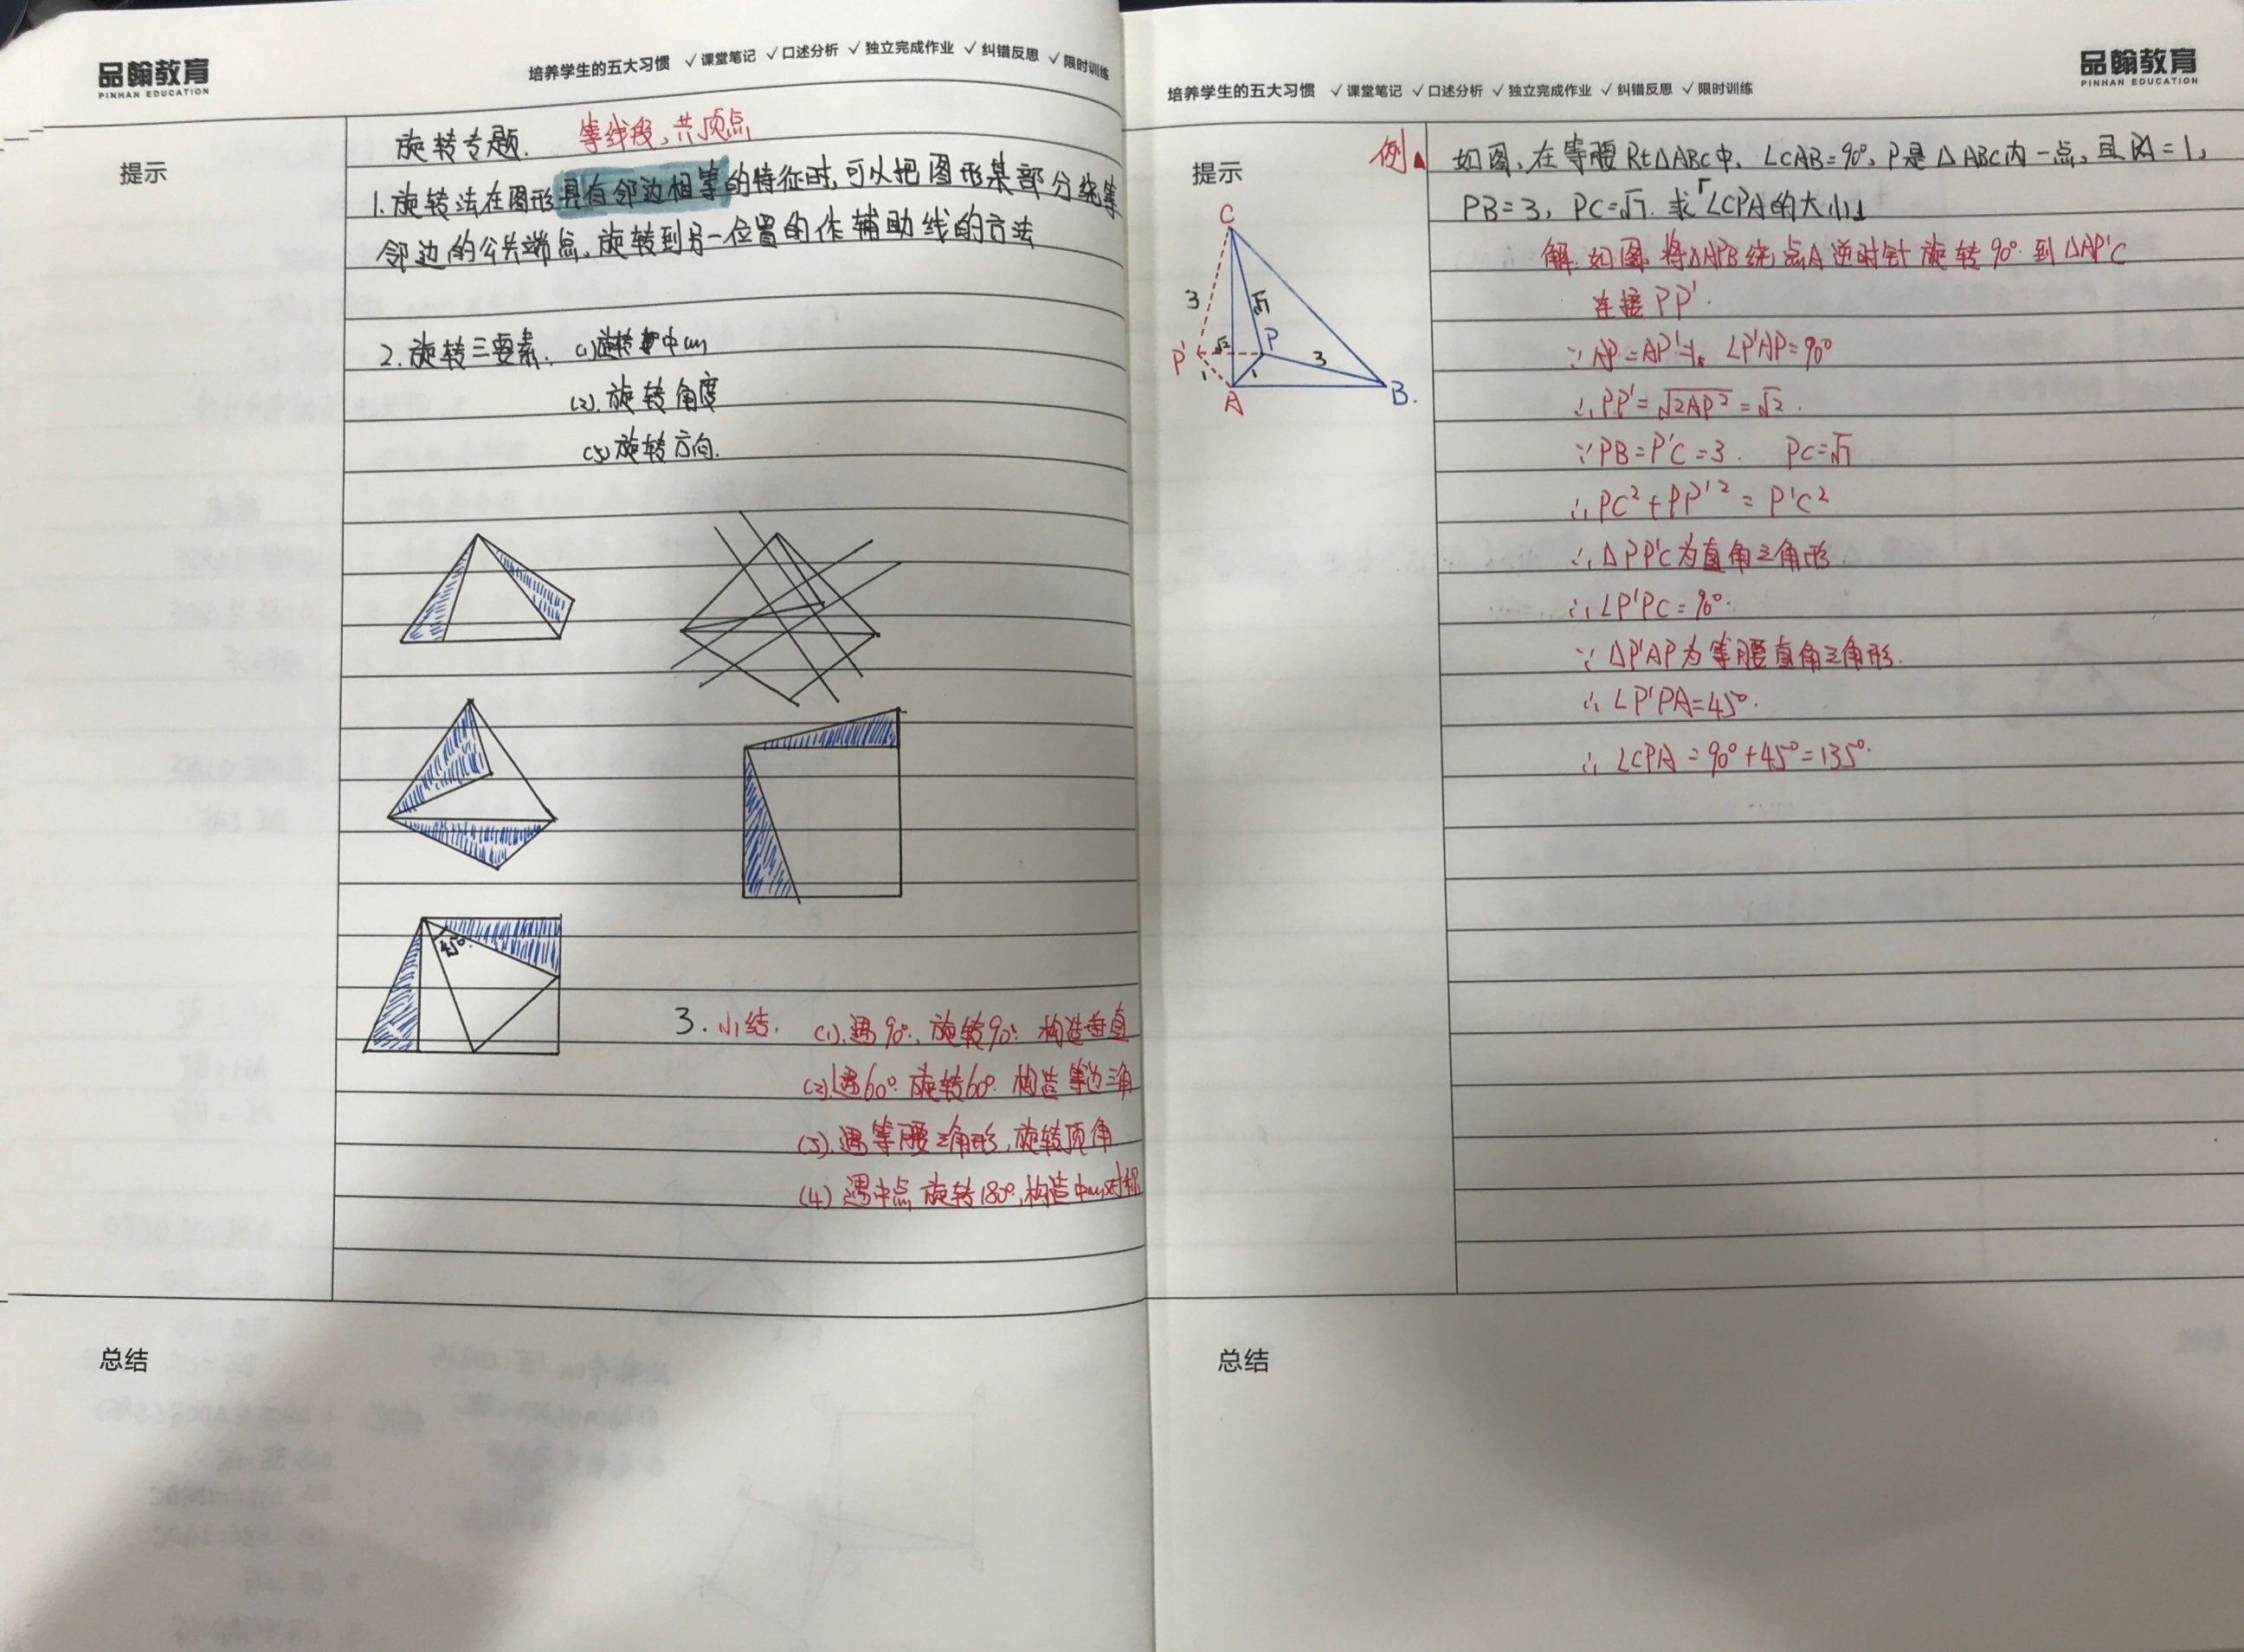 品翰教育
PINHAN EDUCATION
培养学生的五大习惯 ✓课堂笔记 ✓口述分析 ✓独立完成作业 ✓纠错反思 ✓限时训练
提示
旋转专题. 等线段,共顶点
1.旋转法在图形具有邻边相等的特征时,可以把图形某部分绕等
邻边的公共端点,旋转到另一位置的作辅助线的方法
2.旋转三要素. (1)旋转中心
(2).旋转角度
(3)旋转方向.
45°
3.小结. (1).遇90°,旋转90°.构造垂直
(2)遇60°.旋转60°.构造等边三角
(3).遇等腰三角形,旋转顶角
(4)遇中点旋转180°,构造中心对称
总结
培养学生的五大习惯 ✓课堂笔记 ✓口述分析 ✓独立完成作业 ✓纠错反思 ✓限时训练
品翰教育
PINHAN EDUCATION
提示
例.
如图,在等腰Rt△ABC中,∠CAB=90°,P是△ABC内一点,且PA=1,
PB=3, PC=√7. 求「∠CPA的大小」
解.如图,将△APB绕点A逆时针旋转90°到△AP'C
连接PP'.
∵AP=AP'=1. ∠P'AP=90°
∴PP'=√2AP²=√2.
∵PB=P'C=3. PC=√7
∴PC²+PP'²=P'C²
∴△PP'C为直角三角形.
∴∠P'PC=90°.
∵△P'AP为等腰直角三角形.
∴∠P'PA=45°.
∴∠CPA=90°+45°=135°.
C
3
√7
P'
√2
P
3
1
1
A
B.
总结